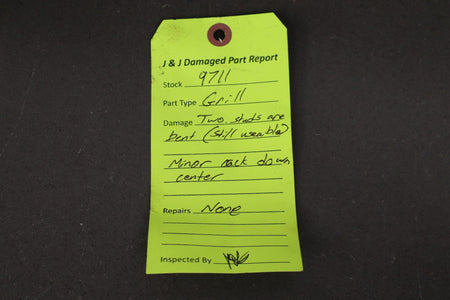 J & J Damaged Part Report
Stock 9711
Part Type Grill
Damage Two studs are
bent (still useable)
Minor down
center
Repairs None
Inspected By